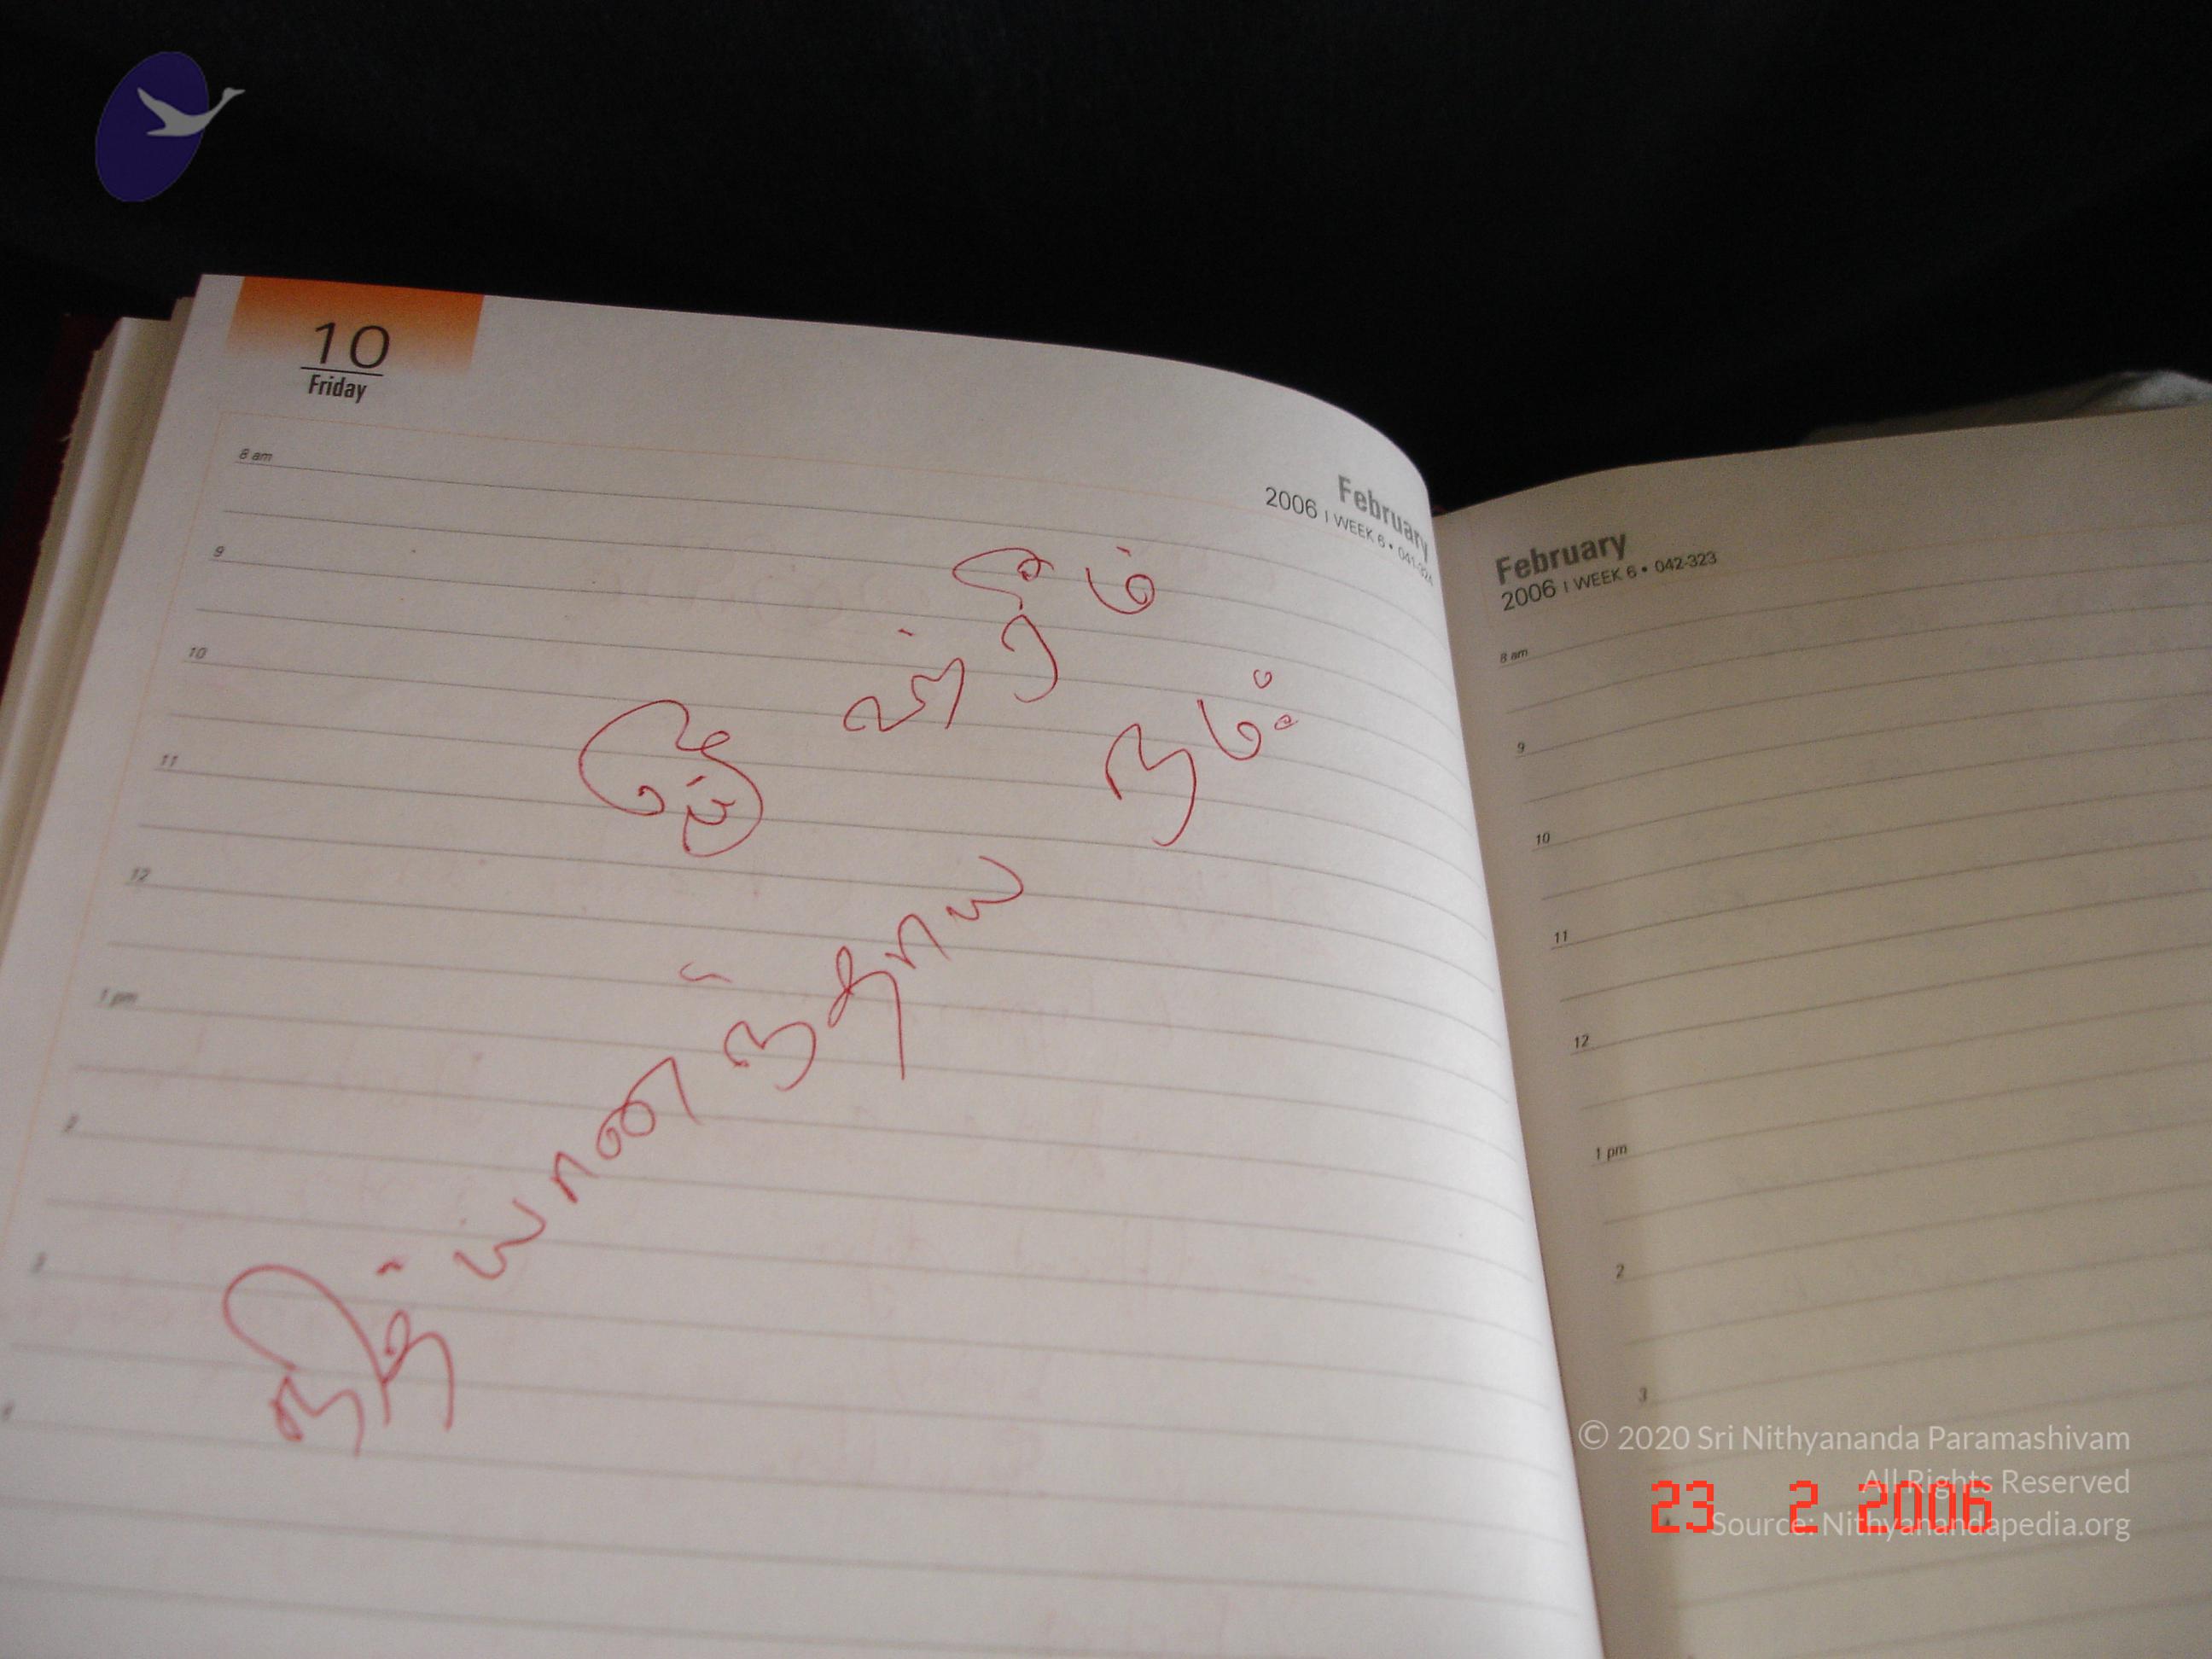 10
Friday
February
2006 | WEEK 6 • 041-324
8 am
9
10
11
12
1 pm
2
3
4
ஓம் ஹ்ரீம்
நித்யானந்தாய நம:
February
2006 | WEEK 6 • 042-323
8 am
9
10
11
12
1 pm
2
3
© 2020 Sri Nithyananda Paramashivam
All Rights Reserved
Source: Nithyanandapedia.org
23 2 2006